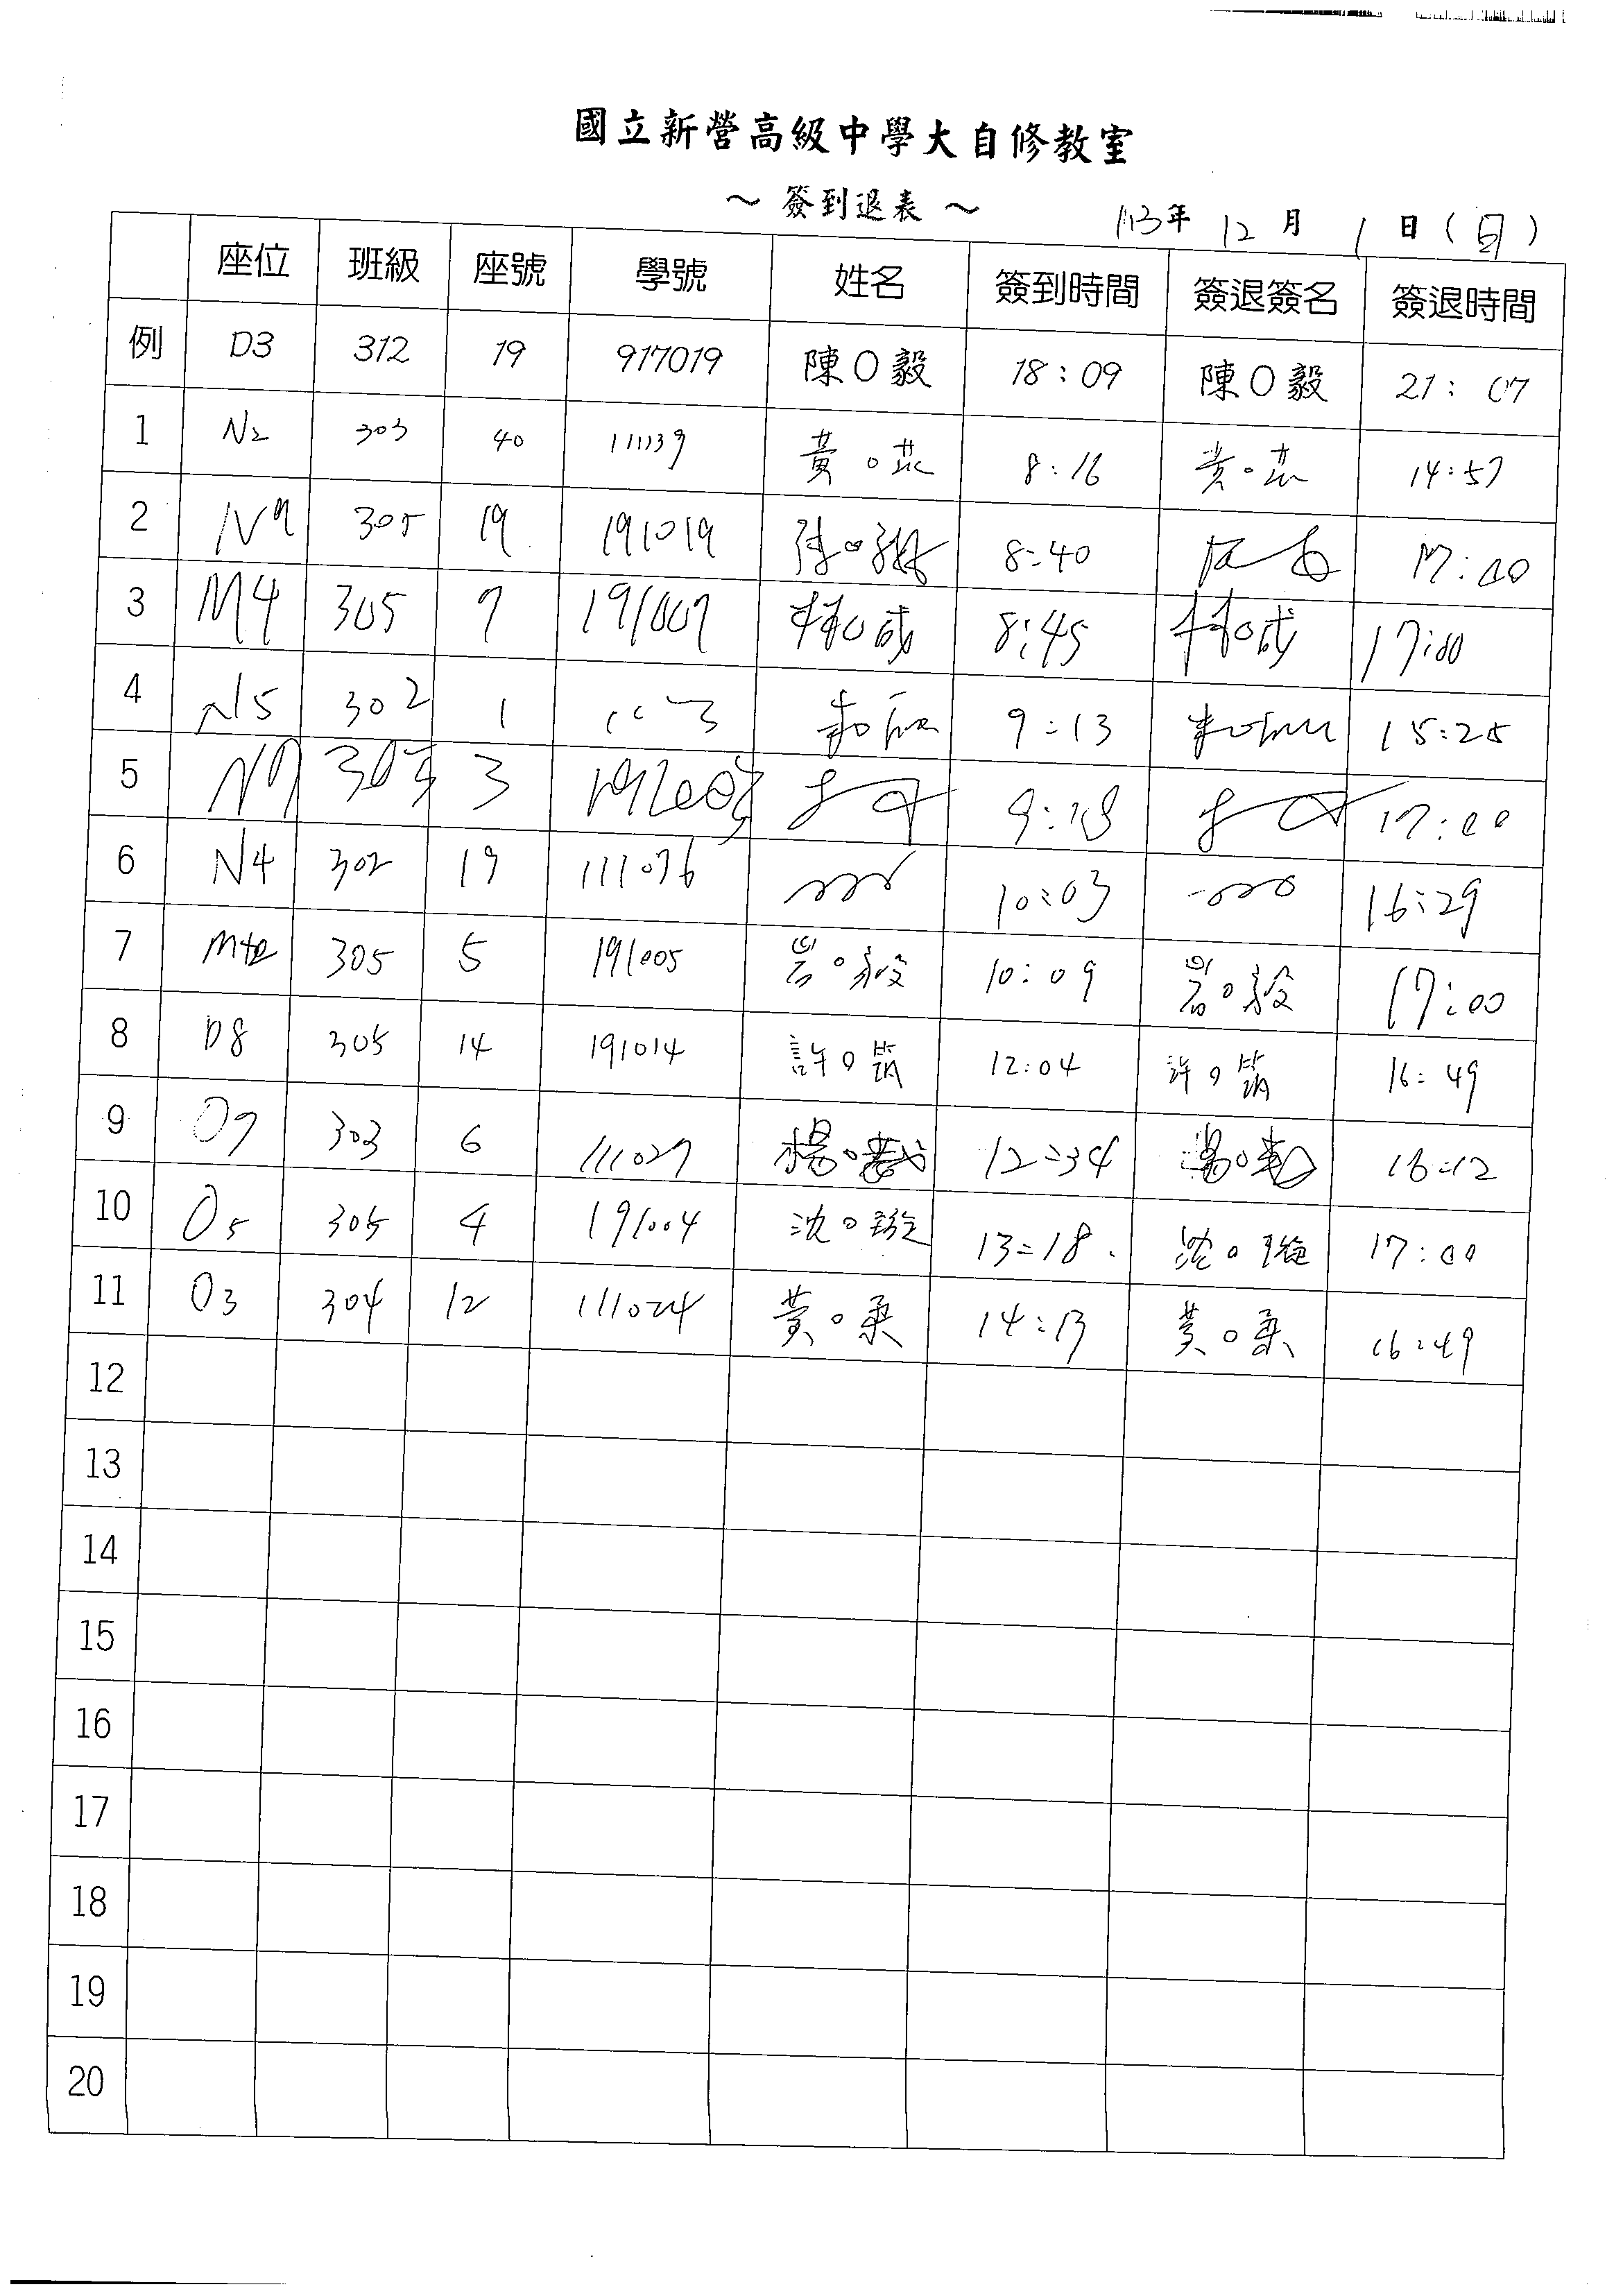 國立新營高級中學大自修教室
～ 簽到退表 ～ 113年 12 月 1 日 (日)
座位 班級 座號 學號 姓名 簽到時間 簽退簽名 簽退時間
例 D3 312 19 917019 陳O毅 18:09 陳O毅 21:07
1 N2 303 40 111139 黃O 8:16 黃O 14:57
2 N9 305 19 191019 8:40 17:00
3 M4 305 7 191007 林O成 8:45 林O成 17:00
4 N5 302 1 9:13 15:25
5 305 3 17:00
6 N4 302 19 111076 10:03 16:29
7 305 5 191005 10:09 17:00
8 D8 305 14 191014 許O筑 12:04 許O筑 16:49
9 O7 303 6 111027 楊O 12:34 楊O 16:12
10 O5 305 4 191004 沈O璇 13:18 沈O璇 17:00
11 O3 304 12 111024 黃O柔 14:13 黃O柔 16:49
12
13
14
15
16
17
18
19
20